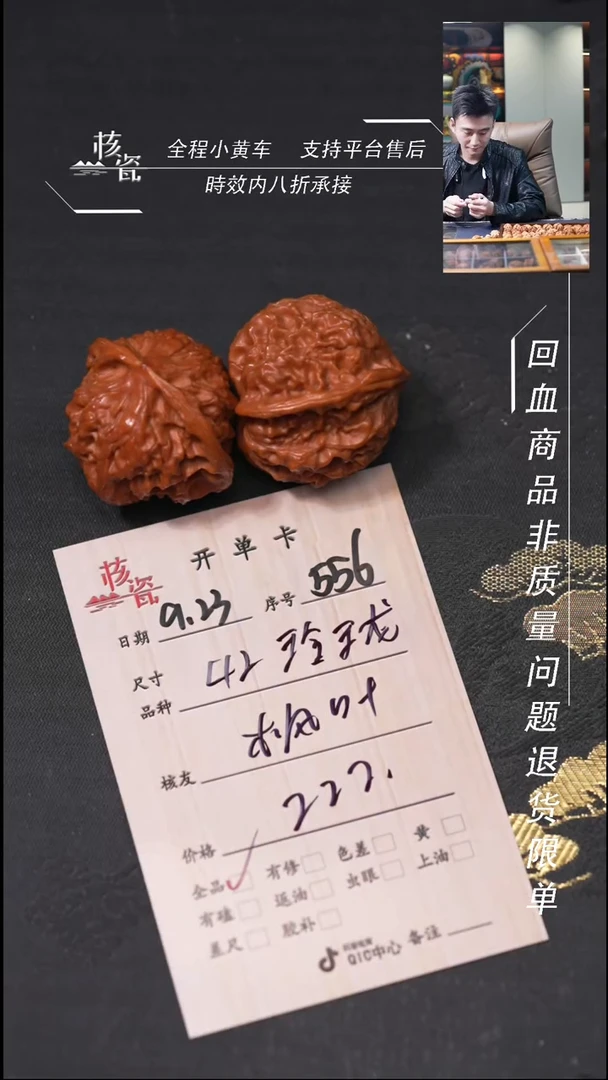 核瓷
全程小黄车 支持平台售后
時效内八折承接
回血商品非质量问题退货限单
核瓷
开单卡
日期 9.23 序号 556
尺寸
品种 42 玲珑
核友 枫叶
价格 222.
全品 有修 色差 黄
有磕 返油 虫眼 上油
差尺 胶补
QIC中心 备注